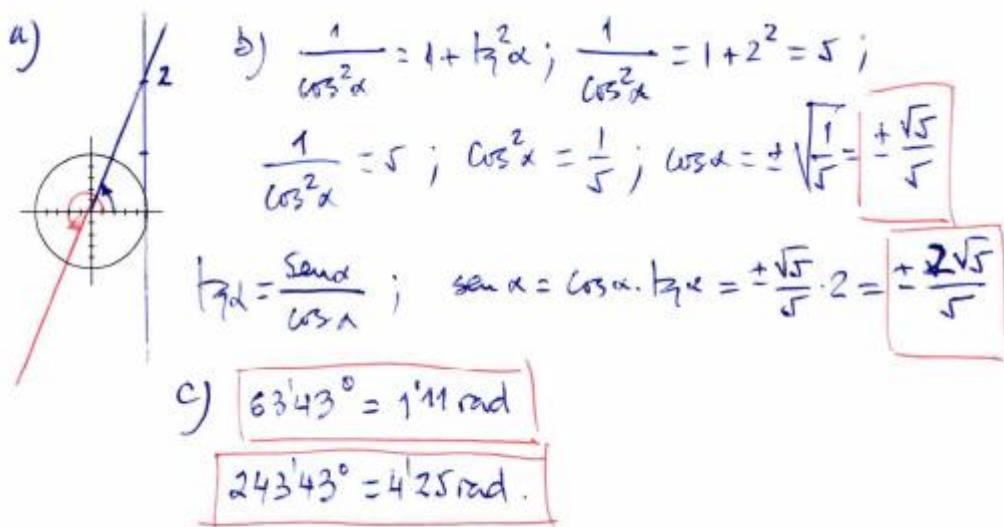 a)
2
b) 1/cos²α = 1 + tg²α ; 1/cos²α = 1 + 2² = 5 ;
1/cos²α = 5 ; cos²α = 1/5 ; cosα = ± √(1/5) = ± √5/5
tgα = senα/cosα ; senα = cosα · tgα = ±√5/5 · 2 = ± 2√5/5
c) 63'43° = 1'11 rad
243'43° = 4'25 rad.